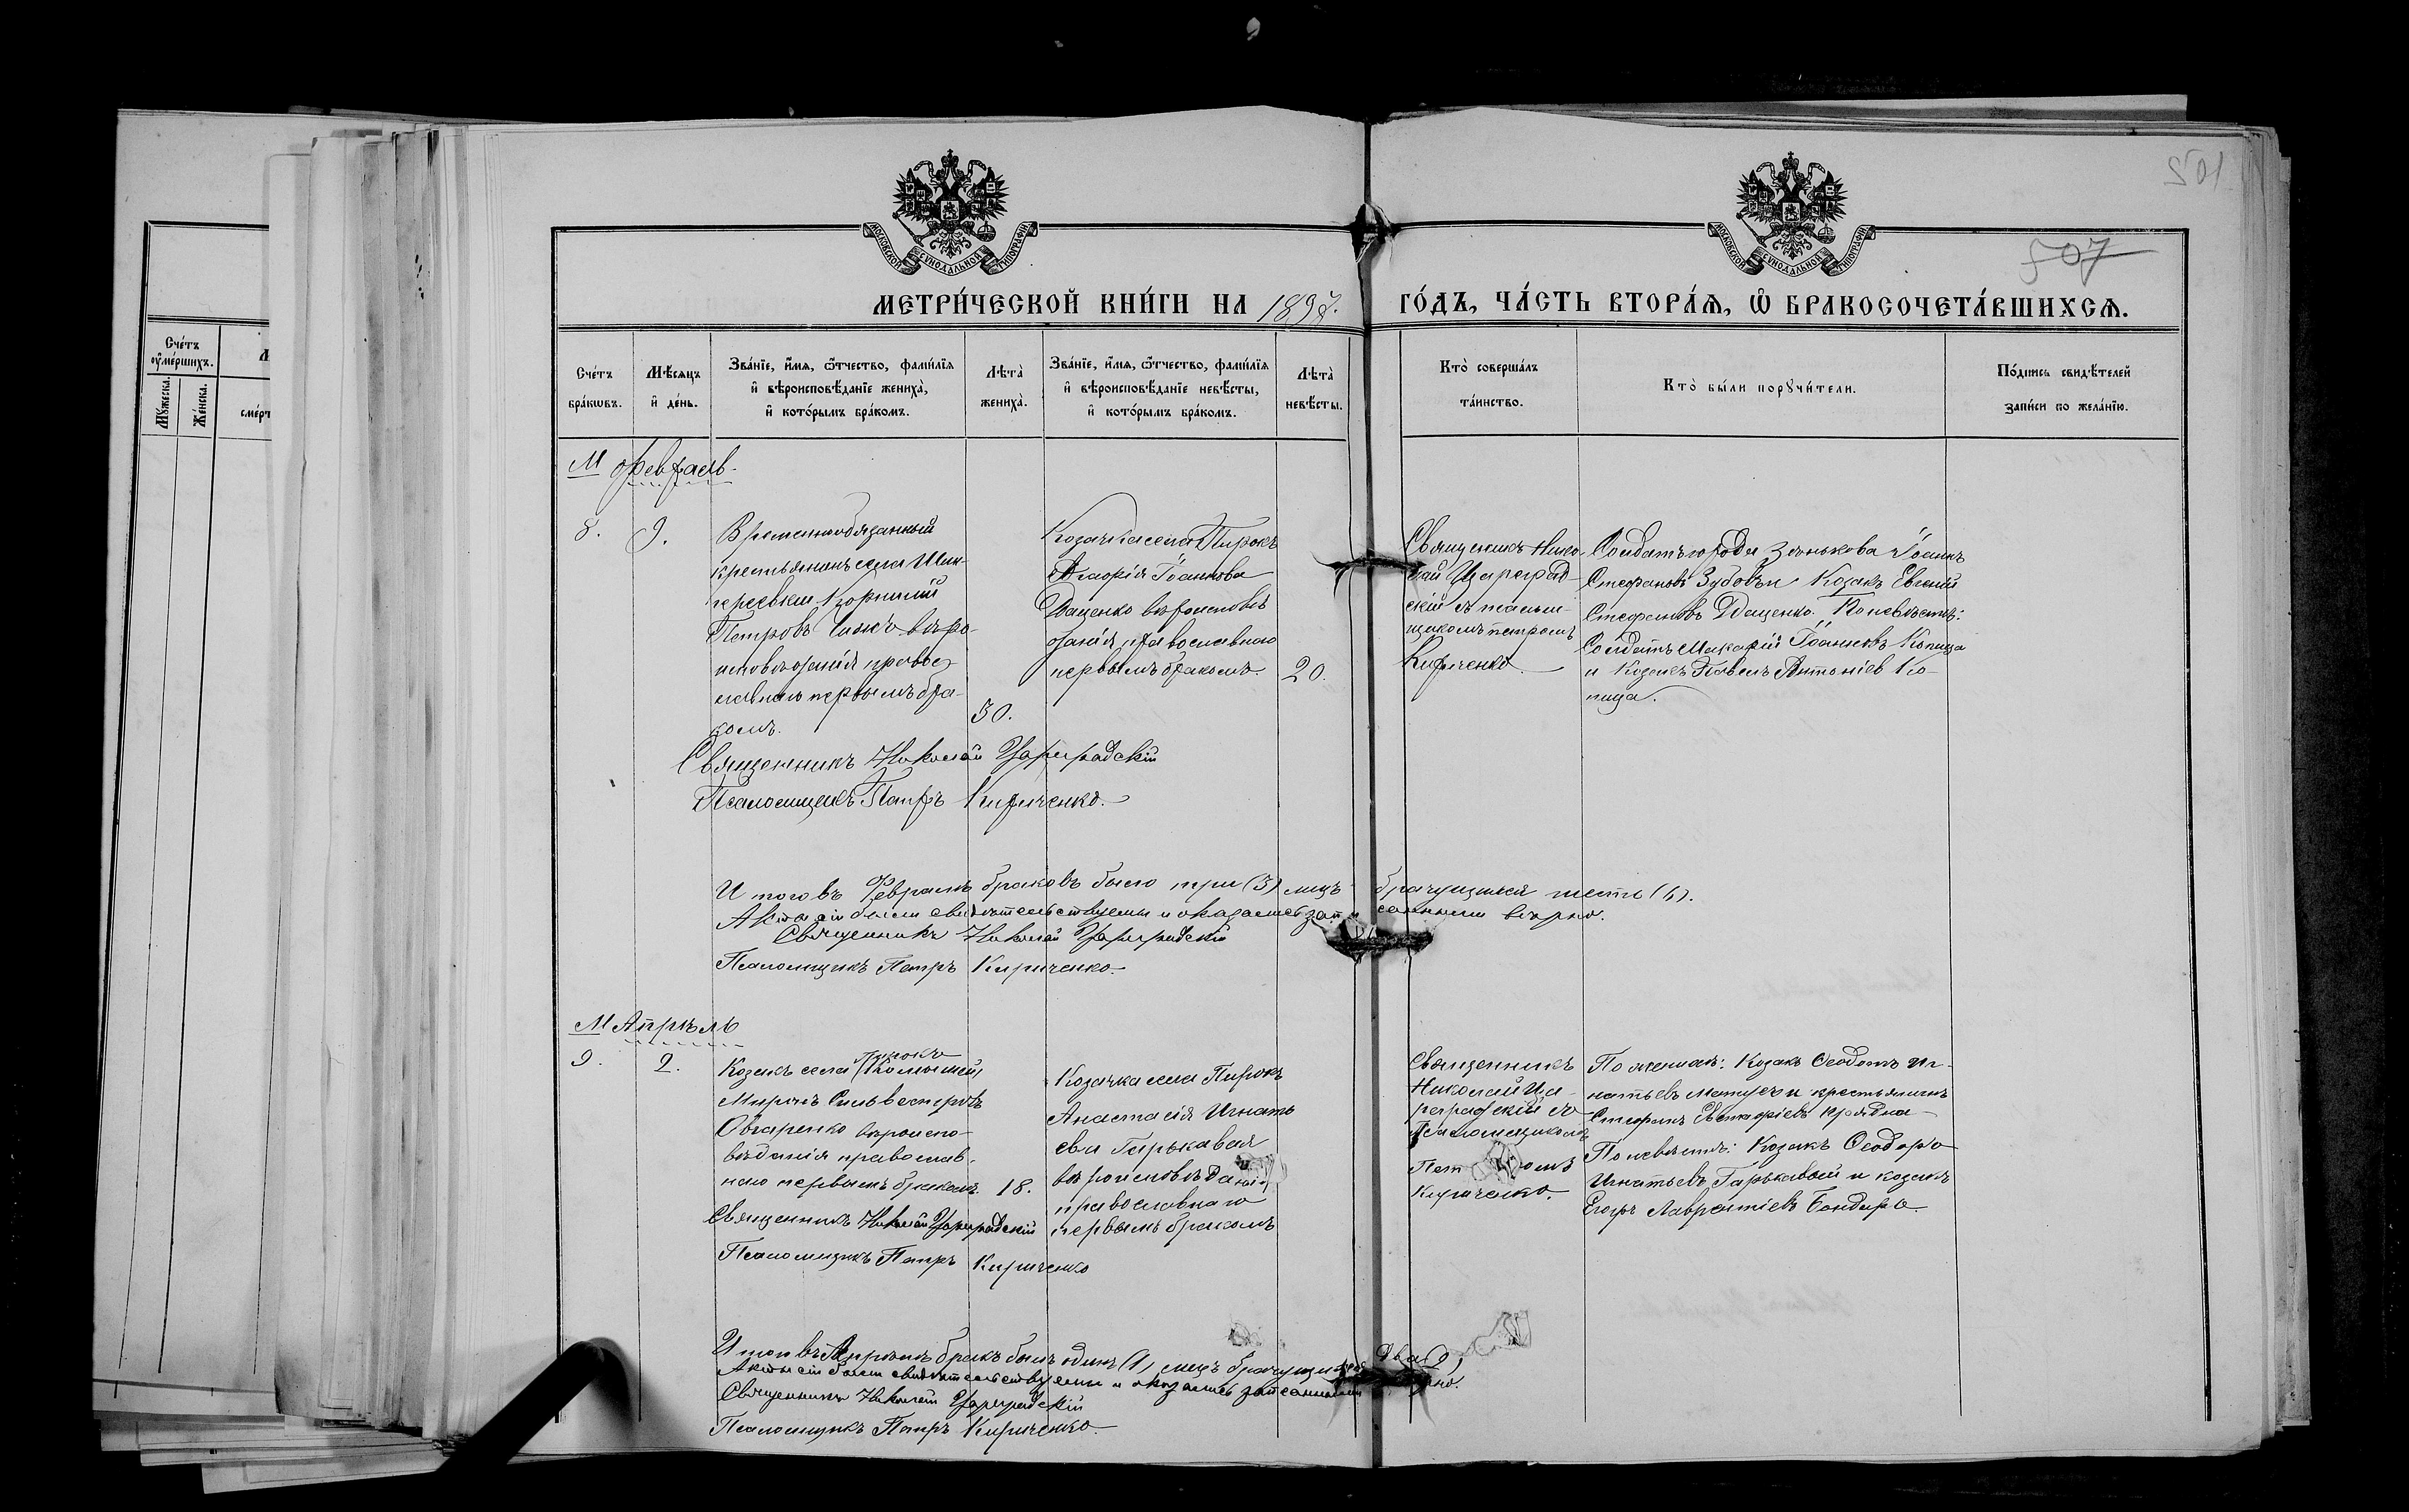 501
507
МОСКОВСКОЙ СѴНОДАЛЬНОЙ ТИПОГРАФІИ
МОСКОВСКОЙ СѴНОДАЛЬНОЙ ТИПОГРАФІИ
МЕТРИ́ЧЕСКОЙ КНИ́ГИ НА 1897. ГО́ДЪ, ЧА́СТЬ ВТОРА́Ѧ, Ѡ҆ БРАКОСОЧЕТА́ВШИХСѦ.
Сче́тъ
оу҆ме́ршихъ.
Мꙋ́жеска.
Же́нска.
сме́рт
Сче́тъ
бра́кѡвъ.
Мѣ́сяцъ
и҆ де́нь.
Зва́нїе, и҆́мя, ѻ҆́тчество, фами́лїя
и҆ вѣроисповѣ́данїе жениха̀,
и҆ кото́рымъ бра́комъ.
Лѣта̀
жениха̀.
Зва́нїе, и҆́мя, ѻ҆́тчество, фами́лїя
и҆ вѣроисповѣ́данїе невѣ́сты,
и҆ кото́рымъ бра́комъ.
Лѣта̀
невѣ́сты.
Кто̀ соверша́лъ
та́инство.
Кто̀ бы́ли порꙋчи́тели.
По́дпись свидѣ́телей
за́писи по жела́нїю.
М Февраль.
8.
9.
Временнообязанный
крестьянинъ села
Петровъ вѣро-
исповѣданія правос-
лавнаго первымъ бра-
комъ.
30.
Козачка села Пирокъ
Іоаннова
Даценко вѣроисповѣ
данія православнаго
первымъ бракомъ.
20.
Священникъ Нико-
лай Цареград-
скій съ псалом-
щикомъ Петромъ
Кириченко.
Солдатъ города Зѣнькова Іоаннъ
Стефановъ Зубовъ и Козакъ Евгеній
Стефановъ Даценко. По невѣстѣ:
Солдатъ Макарій Іоанновъ Копица
и Козакъ Павелъ Антоніев Ко-
пица.
Священникъ Николай Цареградскій
Псаломщикъ Петръ Кириченко.
Итого въ Февралѣ браковъ было три (3) лицъ брачущихся шесть (6).
Акты сіи были свидѣтельствуемы и оказались записанными вѣрно.
Священникъ Николай Цареградскій
Псаломщикъ Петръ Кириченко.
М Апрѣль
9.
2.
Пирокъ
Козакъ села
Миронъ Сильвестровъ
Овчаренко вѣроиспо-
вѣданія православ-
наго первымъ бракомъ.
18.
Козачка села Пирокъ
Анастасія Игнать
ева Гарькавая
вѣроисповѣданія
православнаго
первымъ бракомъ
Священникъ
Николай Ца-
реградскій съ
Псаломщикомъ
Петромъ
Кириченко.
По женихѣ: Козакъ Ѳеодотъ Иг-
натьевъ и крестьянинъ
Стефанъ Евстафіевъ
По невѣстѣ: Козакъ Ѳеодоръ
Игнатьевъ Гарькавый и козакъ
Егоръ Лаврентіевъ Бондарь
Священникъ Николай Цареградскій
Псаломщикъ Петръ Кириченко
Итого въ Апрѣлѣ бракъ былъ одинъ (1) лицъ брачущихся два (2)
Акты сіи были свидѣтельствуемы и оказались записанными
Священникъ Николай Цареградскій
Псаломщикъ Петръ Кириченко.